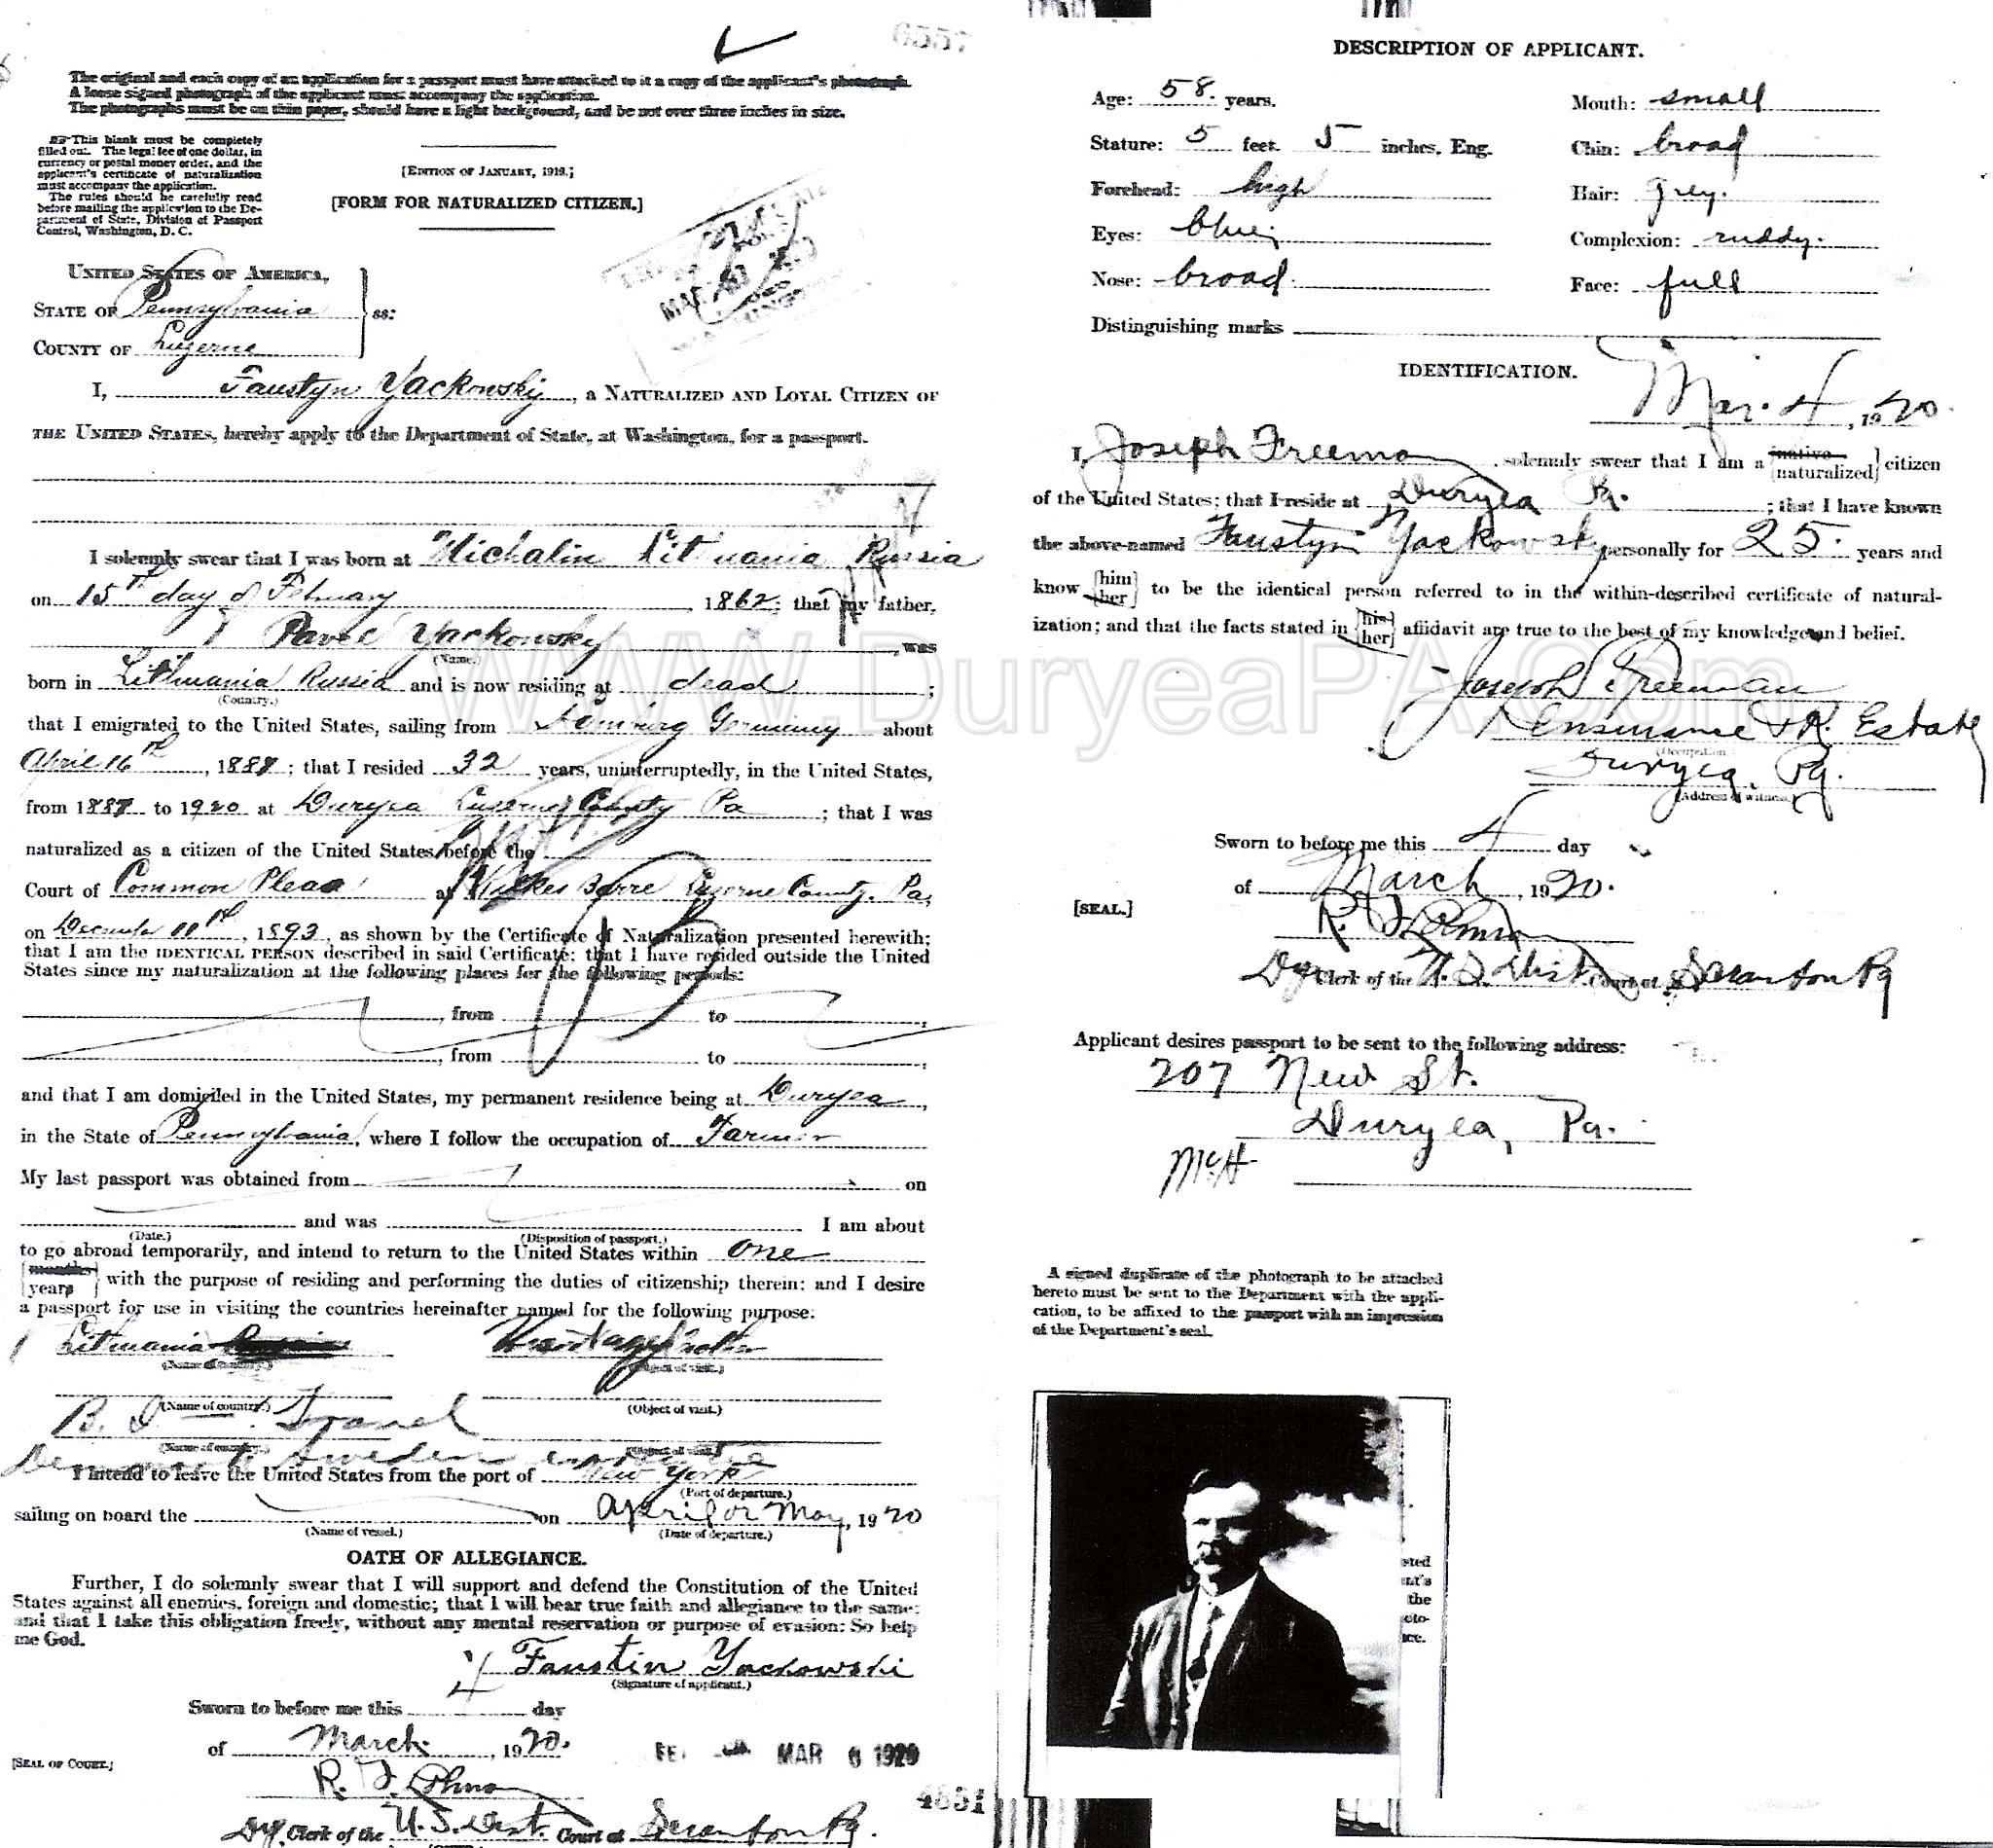 The original and each copy of an application for a passport must have attached to it a copy of the applicant's photograph.
A loose signed photograph of the applicant must accompany the application.
The photographs must be on thin paper, should have a light background, and be not over three inches in size.
This blank must be completely
filled out. The legal fee of one dollar, in
currency or postal money order, and the
applicant's certificate of naturalization
must accompany the application.
The rules should be carefully read
before mailing the application to the De-
partment of State, Division of Passport
Control, Washington, D. C.
[EDITION OF JANUARY, 1919.]
[FORM FOR NATURALIZED CITIZEN.]
UNITED STATES OF AMERICA,
STATE OF Pennsylvania
COUNTY OF Luzerne
ss:
I, Faustyn Yackowsky, a NATURALIZED AND LOYAL CITIZEN OF
THE UNITED STATES, hereby apply to the Department of State, at Washington, for a passport.
I solemnly swear that I was born at Michalin Lithuania Russia
on 15th day of February, 1862; that my father,
Yackowsky, was
(Name.)
born in Lithuania Russia and is now residing at dead;
(Country.)
that I emigrated to the United States, sailing from Germany about
April 16th, 1887; that I resided 32 years, uninterruptedly, in the United States,
from 1887 to 1920 at Duryea Luzerne County Pa; that I was
naturalized as a citizen of the United States before the
Court of Common Pleas at Wilkes Barre Luzerne County, Pa,
on December 11th, 1893, as shown by the Certificate of Naturalization presented herewith;
that I am the IDENTICAL PERSON described in said Certificate; that I have resided outside the United
States since my naturalization at the following places for the following periods:
, from to ,
, from to ,
and that I am domiciled in the United States, my permanent residence being at Duryea,
in the State of Pennsylvania, where I follow the occupation of Farmer
My last passport was obtained from on
and was I am about
(Date.) (Disposition of passport.)
to go abroad temporarily, and intend to return to the United States within one
[months years] with the purpose of residing and performing the duties of citizenship therein; and I desire
a passport for use in visiting the countries hereinafter named for the following purpose:
Lithuania
(Name of country.) (Object of visit.)
(Name of country.) (Object of visit.)
Travel
(Name of country.) (Object of visit.)
Sweden
I intend to leave the United States from the port of New York
(Port of departure.)
sailing on board the on April or May, 1920
(Name of vessel.) (Date of departure.)
OATH OF ALLEGIANCE.
Further, I do solemnly swear that I will support and defend the Constitution of the United
States against all enemies, foreign and domestic; that I will bear true faith and allegiance to the same;
and that I take this obligation freely, without any mental reservation or purpose of evasion: So help
me God.
Faustin Yackowski
(Signature of applicant.)
Sworn to before me this 4 day
of March, 1920.
[SEAL OF COURT.]
MAR 6 1920
Dy Clerk of the U.S. Dist. Court at Scranton Pa.
DESCRIPTION OF APPLICANT.
Age: 58. years. Mouth: small
Stature: 5 feet 5 inches, Eng. Chin: broad
Forehead: high Hair: grey.
Eyes: blue Complexion: ruddy.
Nose: broad. Face: full
Distinguishing marks
IDENTIFICATION.
Mar. 4, 1920.
I, Joseph Freeman, solemnly swear that I am a [native naturalized] citizen
of the United States; that I reside at Duryea Pa.; that I have known
the above-named Faustyn Yackowsky personally for 25 years and
know [him her] to be the identical person referred to in the within-described certificate of natural-
ization; and that the facts stated in [his her] affidavit are true to the best of my knowledge and belief.
Joseph Freeman
Insurance & R. Estate
(Occupation.)
Duryea, Pa.
(Address of witness.)
Sworn to before me this 4 day
of March, 1920.
[SEAL.]
Dy Clerk of the U.S. Dist. Court at Scranton Pa
Applicant desires passport to be sent to the following address:
207 New St.
Duryea, Pa.
McH
A signed duplicate of the photograph to be attached
hereto must be sent to the Department with the appli-
cation, to be affixed to the passport with an impression
of the Department's seal.
WWW.DuryeaPA.Com